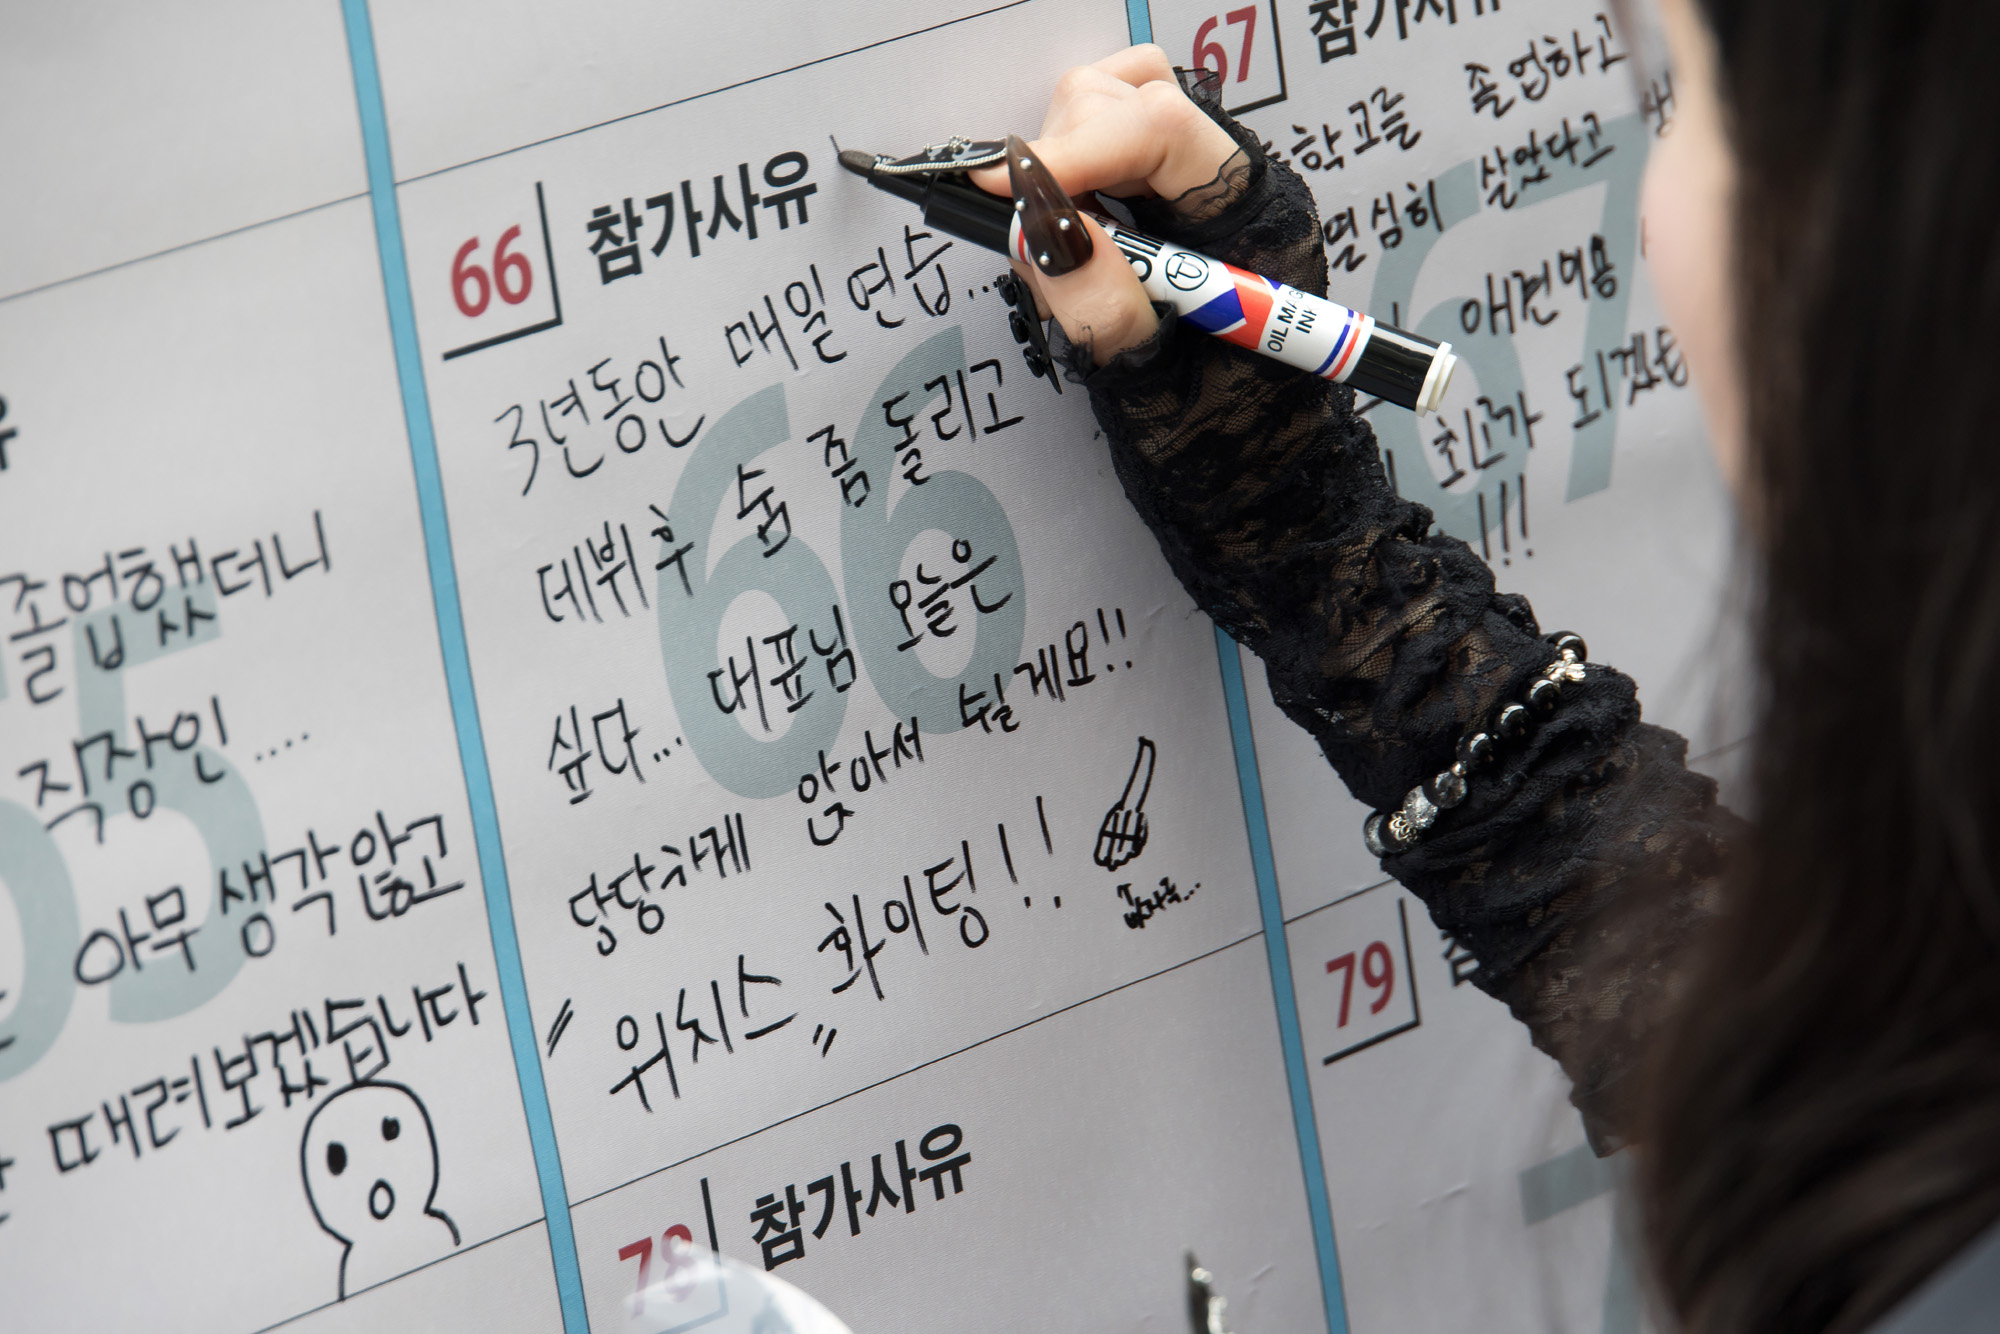 졸업했더니
직장인....
아무 생각 않고
때려보겠습니다
66 참가사유
3년동안 매일 연습...
데뷔 후 숨 좀 돌리고
싶다... 대표님 오늘은
당당하게 앉아서 쉴게요!!
"위치스 화이팅!!
67 참가사유
학교를 졸업하고
열심히 살았다고
애견미용
최고가 되겠
!!!
OIL MA
INK
78 참가사유
79